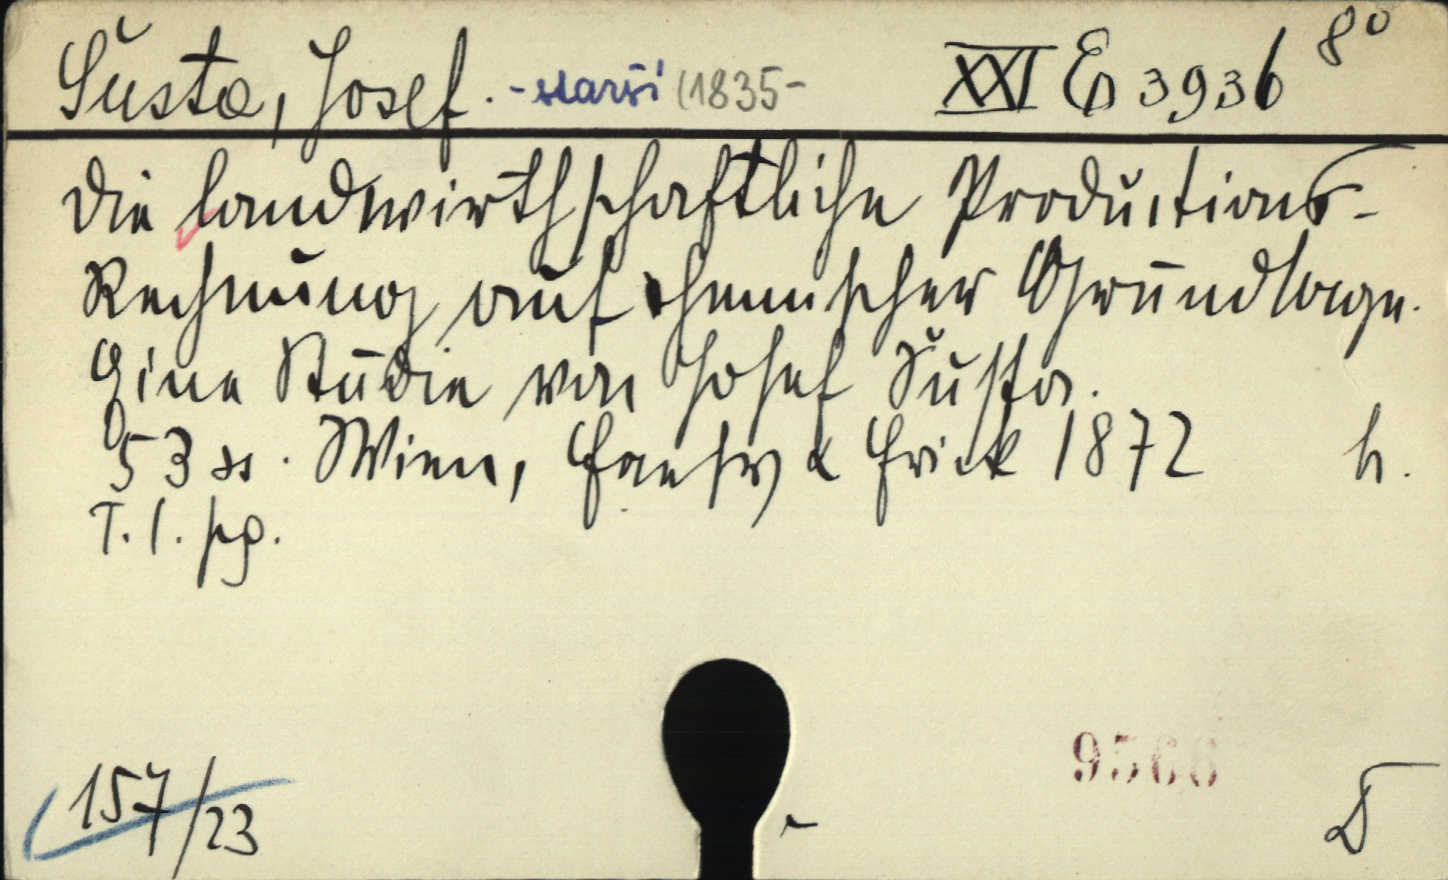 Šusta, Josef. - starší (1835- XXI En 3936 8°
Die landwirthschaftliche Productions-
Rechnung auf chemischer Grundlage.
Eine Studie von Josef Šusta.
53 ss. Wien, Faesy & Frick 1872 h.
T. l. pg.
9566
157/23